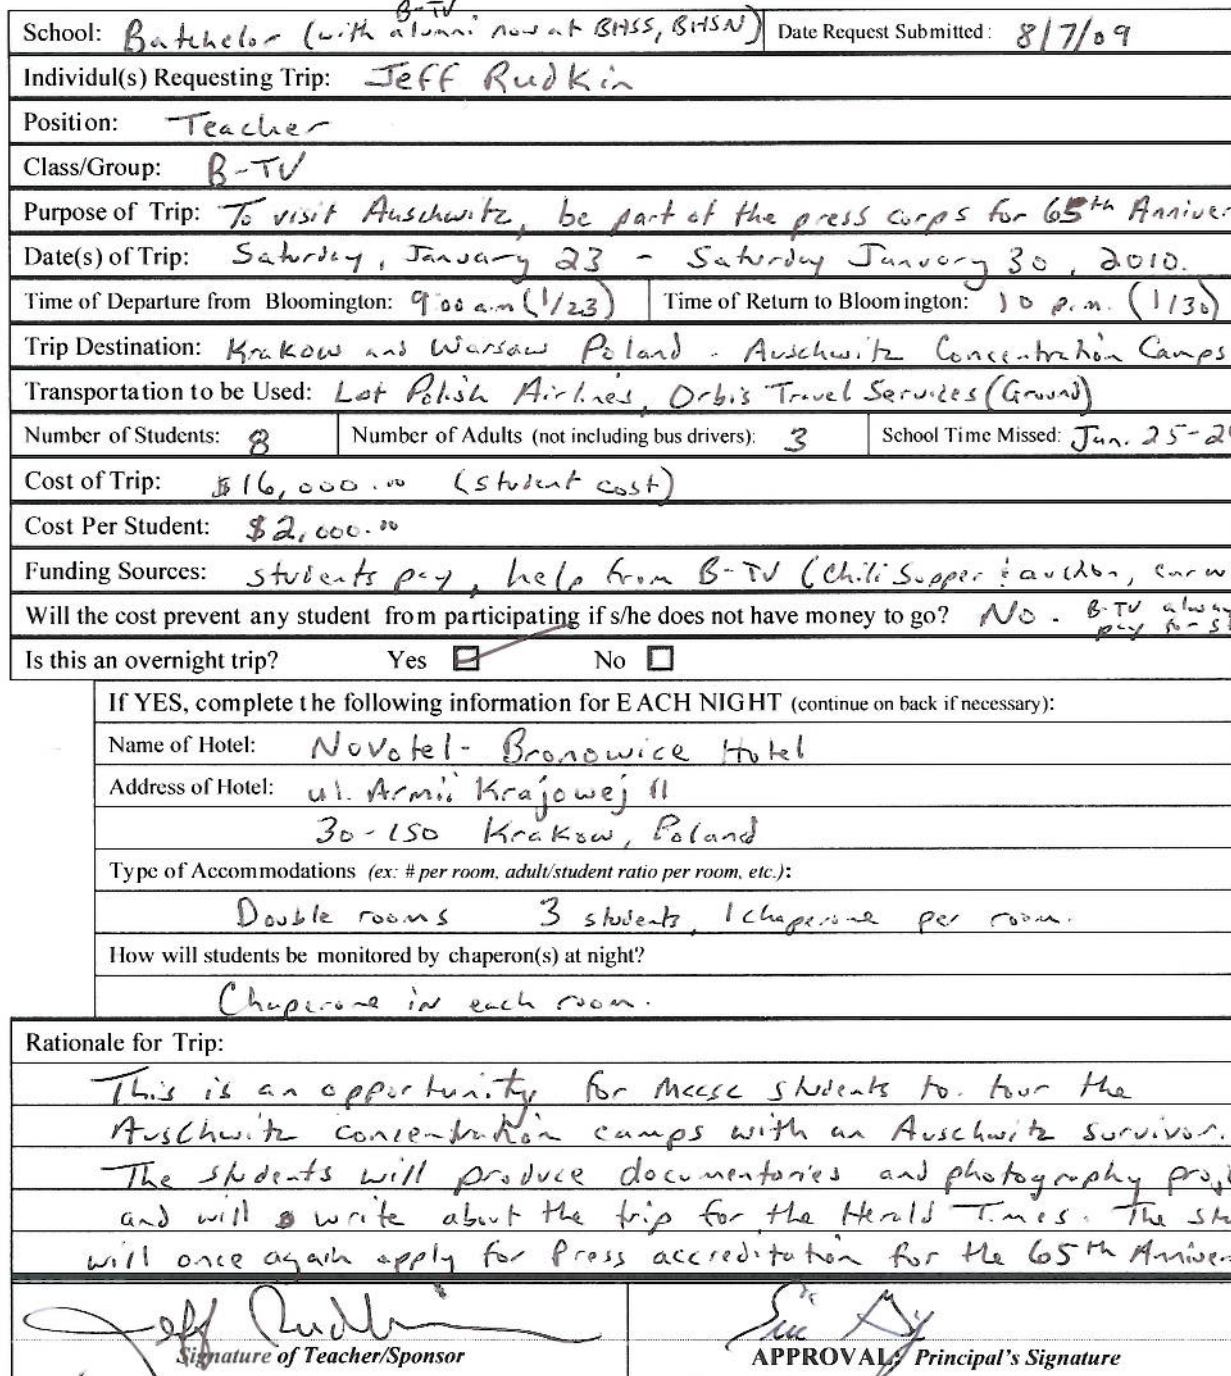 B-TV
School: Batchelor (with alumni now at BHSS, BHSN) Date Request Submitted: 8/7/09
Individul(s) Requesting Trip: Jeff Rudkin
Position: Teacher
Class/Group: B-TV
Purpose of Trip: To visit Auschwitz, be part of the press corps for 65th Anniver
Date(s) of Trip: Saturday, January 23 - Saturday January 30, 2010.
Time of Departure from Bloomington: 9:00 a.m (1/23) Time of Return to Bloomington: 10 p.m. (1/30)
Trip Destination: Krakow and Warsaw Poland - Auschwitz Concentration Camps
Transportation to be Used: Lot Polish Airlines, Orbis Travel Services (Ground)
Number of Students: 8 Number of Adults (not including bus drivers): 3 School Time Missed: Jan. 25-2
Cost of Trip: $16,000.00 (student cost)
Cost Per Student: $2,000.00
Funding Sources: students pay, help from B-TV (Chili Supper & auction, car w
Will the cost prevent any student from participating if s/he does not have money to go? No. B-TV alway
pay for st
Is this an overnight trip? Yes No
If YES, complete the following information for EACH NIGHT (continue on back if necessary):
Name of Hotel: Novotel - Bronowice Hotel
Address of Hotel: ul. Armii Krajowej 11
30-150 Krakow, Poland
Type of Accommodations (ex: # per room, adult/student ratio per room, etc.):
Double rooms 3 students, 1 chaperone per room.
How will students be monitored by chaperon(s) at night?
Chaperone in each room.
Rationale for Trip:
This is an opportunity for MCCSC students to tour the
Auschwitz concentration camps with an Auschwitz survivor.
The students will produce documentories and photography proj
and will write about the trip for the Herald Times. The stu
will once again apply for Press accreditation for the 65th Anniver
Jeff Rudkin
Signature of Teacher/Sponsor APPROVAL: Principal's Signature